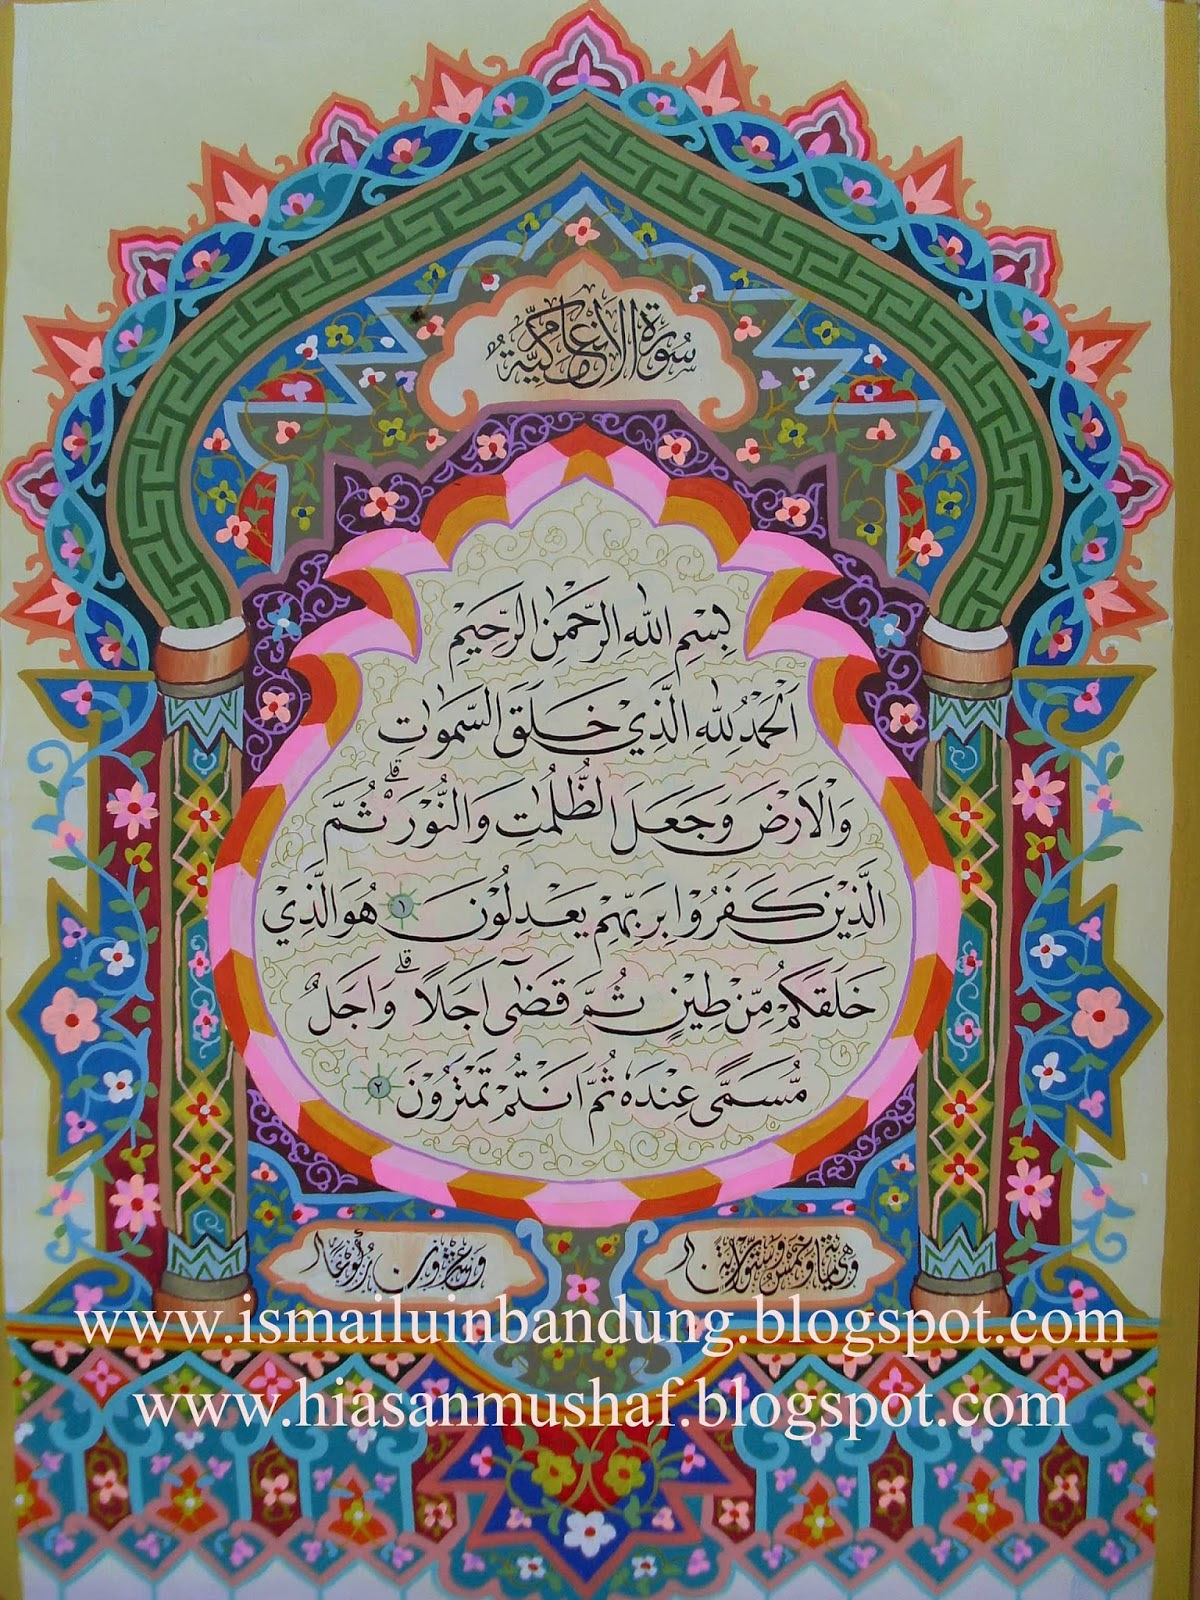 سُورَةُ الْاَنْعَامِ مَكِّيَّةٌ
بِسْمِ اللهِ الرَّحْمٰنِ الرَّحِيْمِ
اَلْحَمْدُ لِلّٰهِ الَّذِيْ خَلَقَ السَّمٰوٰتِ
وَالْاَرْضَ وَجَعَلَ الظُّلُمٰتِ وَالنُّوْرَ ۗ ثُمَّ
الَّذِيْنَ كَفَرُوْا بِرَبِّهِمْ يَعْدِلُوْنَ ١ هُوَ الَّذِيْ
خَلَقَكُمْ مِّنْ طِيْنٍ ثُمَّ قَضٰٓى اَجَلًا ۗ وَاَجَلٌ
مُّسَمًّى عِنْدَهٗ ثُمَّ اَنْتُمْ تَمْتَرُوْنَ ٢
وَهِيَ مِائَةٌ وَخَمْسٌ وَسِتُّوْنَ اٰيَةً
وَعِشْرُوْنَ رُكُوْعًا
www.ismailuinbandung.blogspot.com
www.hiasanmushaf.blogspot.com